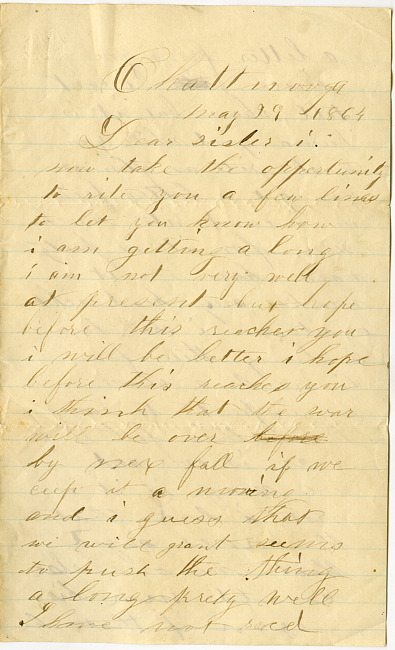 Chattinooga
may 29 1864
Dear sister i
now take the opportunity
to rite you a few lines
to let you know how
i am getting a long
i am not very well
at present but hope
before this reaches you
i will be better i hope
before this reaches you
i think that the war
will be over before
by nex fall if we
ceep it a moving
and i guess that
we will grant seems
to push the thing
a long prety well
I have not recd